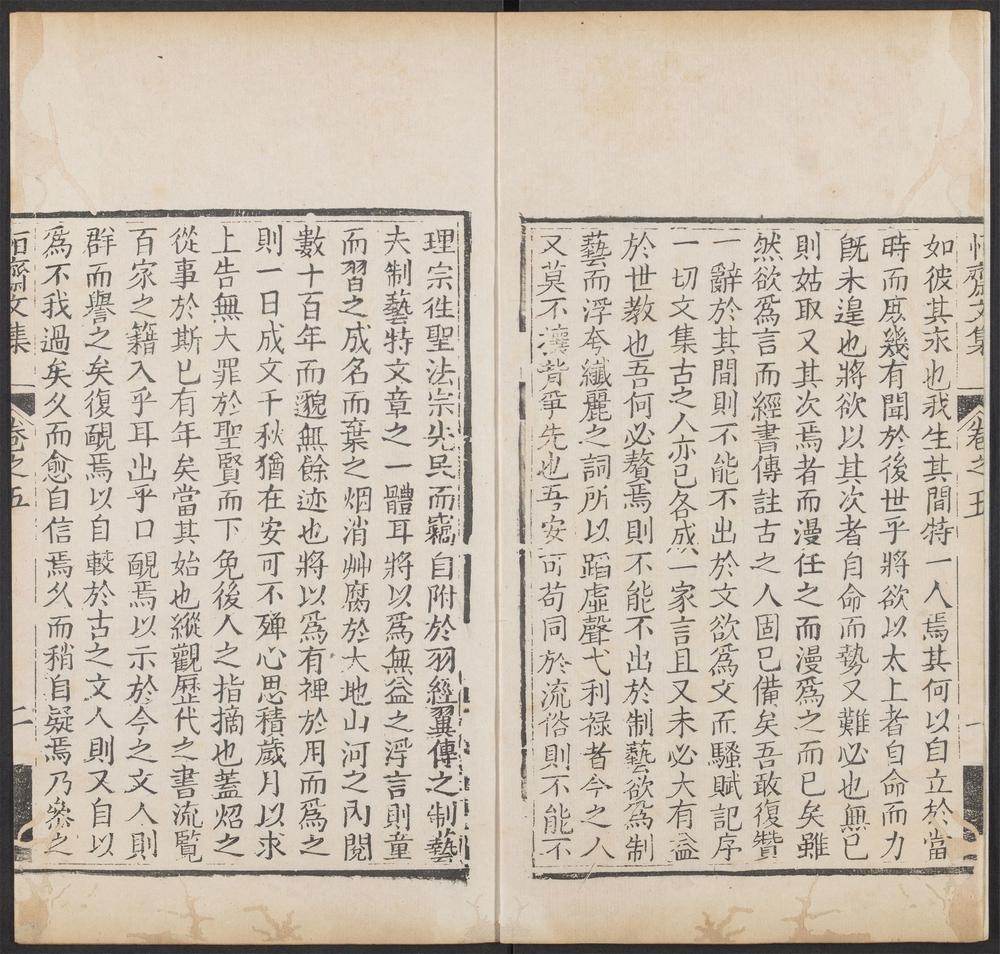 恒齋文集 卷之五 一
如彼其永也我生其間特一人焉其何以自立於當
時而庶幾有聞於後世乎將欲以太上者自命而力
旣未遑也將欲以其次者自命而勢又難必也無已
則姑取又其次焉者而漫任之而漫爲之而已矣雖
然欲爲言而經書傳註古之人固已備矣吾敢復贊
一辭於其間則不能不出於文欲爲文而騷賦記序
一切文集古之人亦已各成一家言且又未必大有益
於世教也吾何必贅焉則不能不出於制藝欲爲制
藝而浮夸纖麗之詞所以蹈虛聲弋利祿者今之人
又莫不瀼背爭先也吾安可苟同於流俗則不能不
理宗徃聖法宗先民而竊自附於羽經翼傳之制藝
夫制藝特文章之一體耳將以爲無益之浮言則童
而習之成名而棄之烟消艸腐於大地山河之內閱
數十百年而邈無餘迹也將以爲有裨於用而爲之
則一日成文千秋猶在安可不殫心思積歲月以求
上告無大罪於聖賢而下免後人之指摘也蓋炤之
從事於斯已有年矣當其始也縱觀歷代之書流覽
百家之籍入乎耳出乎口靦焉以示於今之文人則
群而譽之矣復靦焉以自較於古之文人則又自以
爲不我過矣久而愈自信焉久而稍自疑焉乃叅之
恒齋文集 卷之五 二